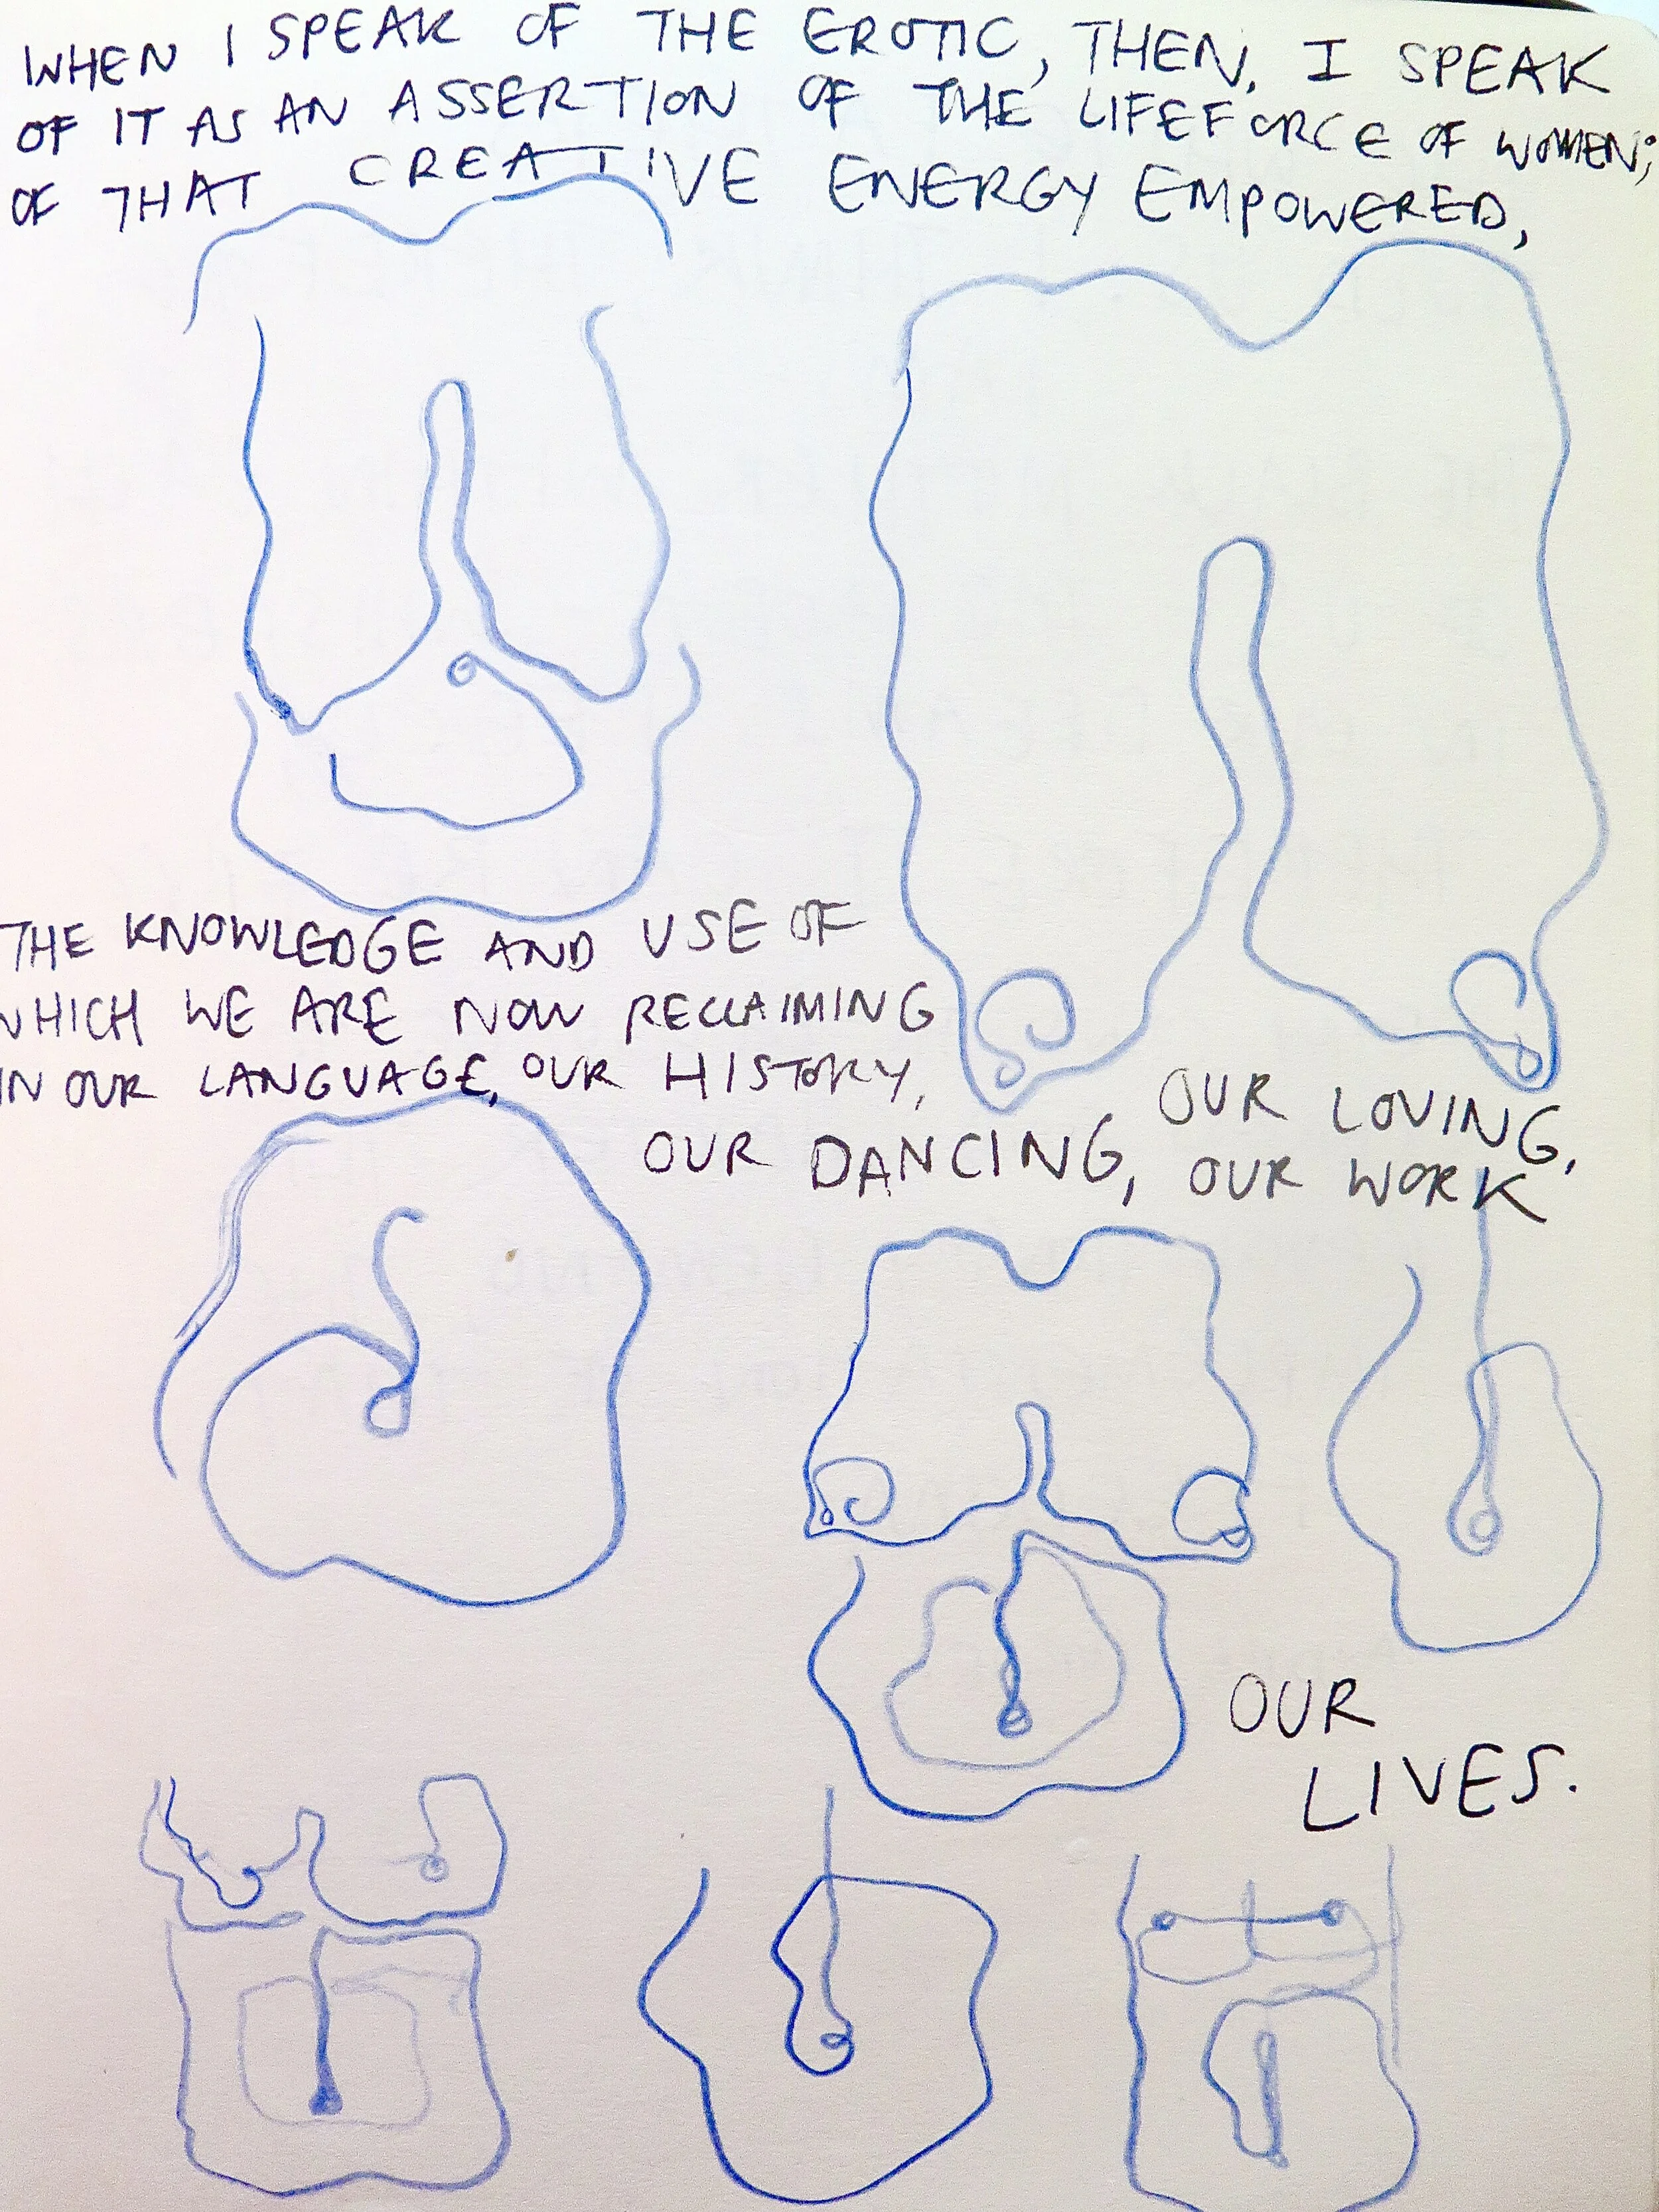 WHEN I SPEAK OF THE EROTIC, THEN, I SPEAK
OF IT AS AN ASSERTION OF THE LIFEFORCE OF WOMEN;
OF THAT CREATIVE ENERGY EMPOWERED,
THE KNOWLEDGE AND USE OF
WHICH WE ARE NOW RECLAIMING
IN OUR LANGUAGE, OUR HISTORY,
OUR DANCING, OUR LOVING,
OUR WORK
OUR
LIVES.